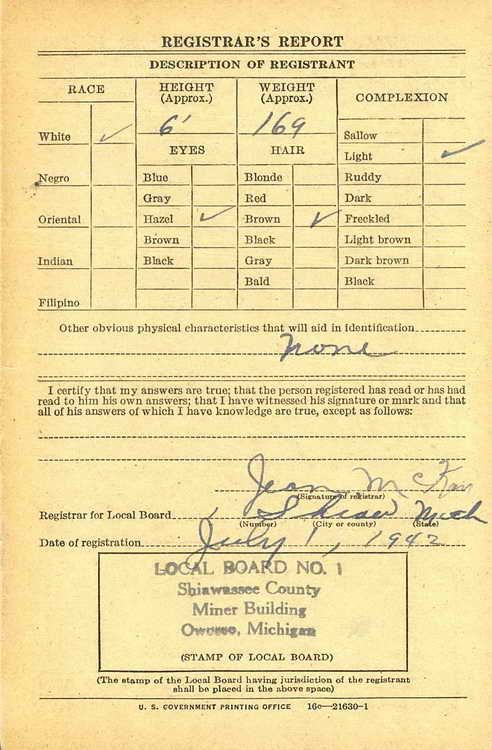 REGISTRAR'S REPORT
DESCRIPTION OF REGISTRANT
RACE
HEIGHT
(Approx.)
WEIGHT
(Approx.)
COMPLEXION
6'
169
White ✓
EYES
HAIR
Sallow
Light ✓
Negro
Blue
Blonde
Ruddy
Gray
Red
Dark
Oriental
Hazel ✓
Brown ✓
Freckled
Brown
Black
Light brown
Indian
Black
Gray
Dark brown
Bald
Black
Filipino
Other obvious physical characteristics that will aid in identification
none
I certify that my answers are true; that the person registered has read or has had
read to him his own answers; that I have witnessed his signature or mark and that
all of his answers of which I have knowledge are true, except as follows:
Jean
(Signature of registrar)
Registrar for Local Board 1 Shiaw Mich
(Number) (City or county) (State)
Date of registration July 1, 1942
LOCAL BOARD NO. 1
Shiawassee County
Miner Building
Owosso, Michigan
(STAMP OF LOCAL BOARD)
(The stamp of the Local Board having jurisdiction of the registrant
shall be placed in the above space)
U. S. GOVERNMENT PRINTING OFFICE 16c—21630-1